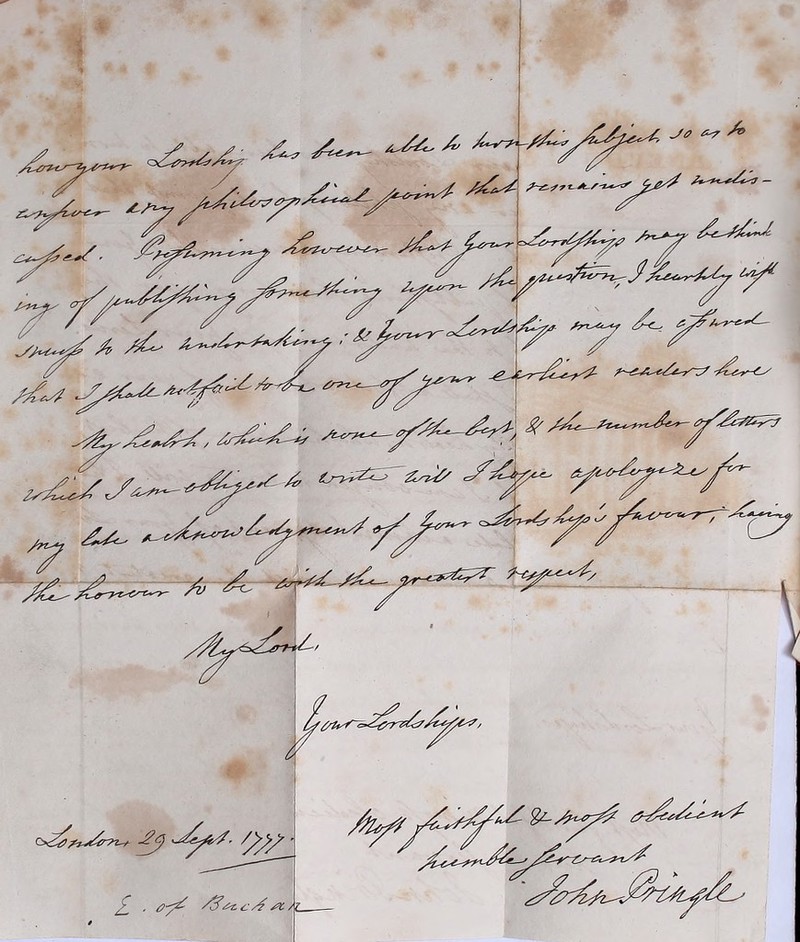 how your Lordship has been able to turn this subject, so as to
answer any philosophical point that remains yet undis-
cussed. Presuming however that your Lordship may be think
ing of publishing something upon the question, I heartily wish
success to the undertaking; & Your Lordship may be assured
that I shall not fail to be one of your earliest readers here
My health, which is none of the best, & the number of letters
which I am obliged to write will I hope apologize for
my late acknowledgment of Your Lordship's favour; having
the honour to be with the greatest respect,
My Lord,
Your Lordships,
Most faithful & most obedient
humble servant
John Pringle
London, 29 Sept. 1777.
E. of Buchan